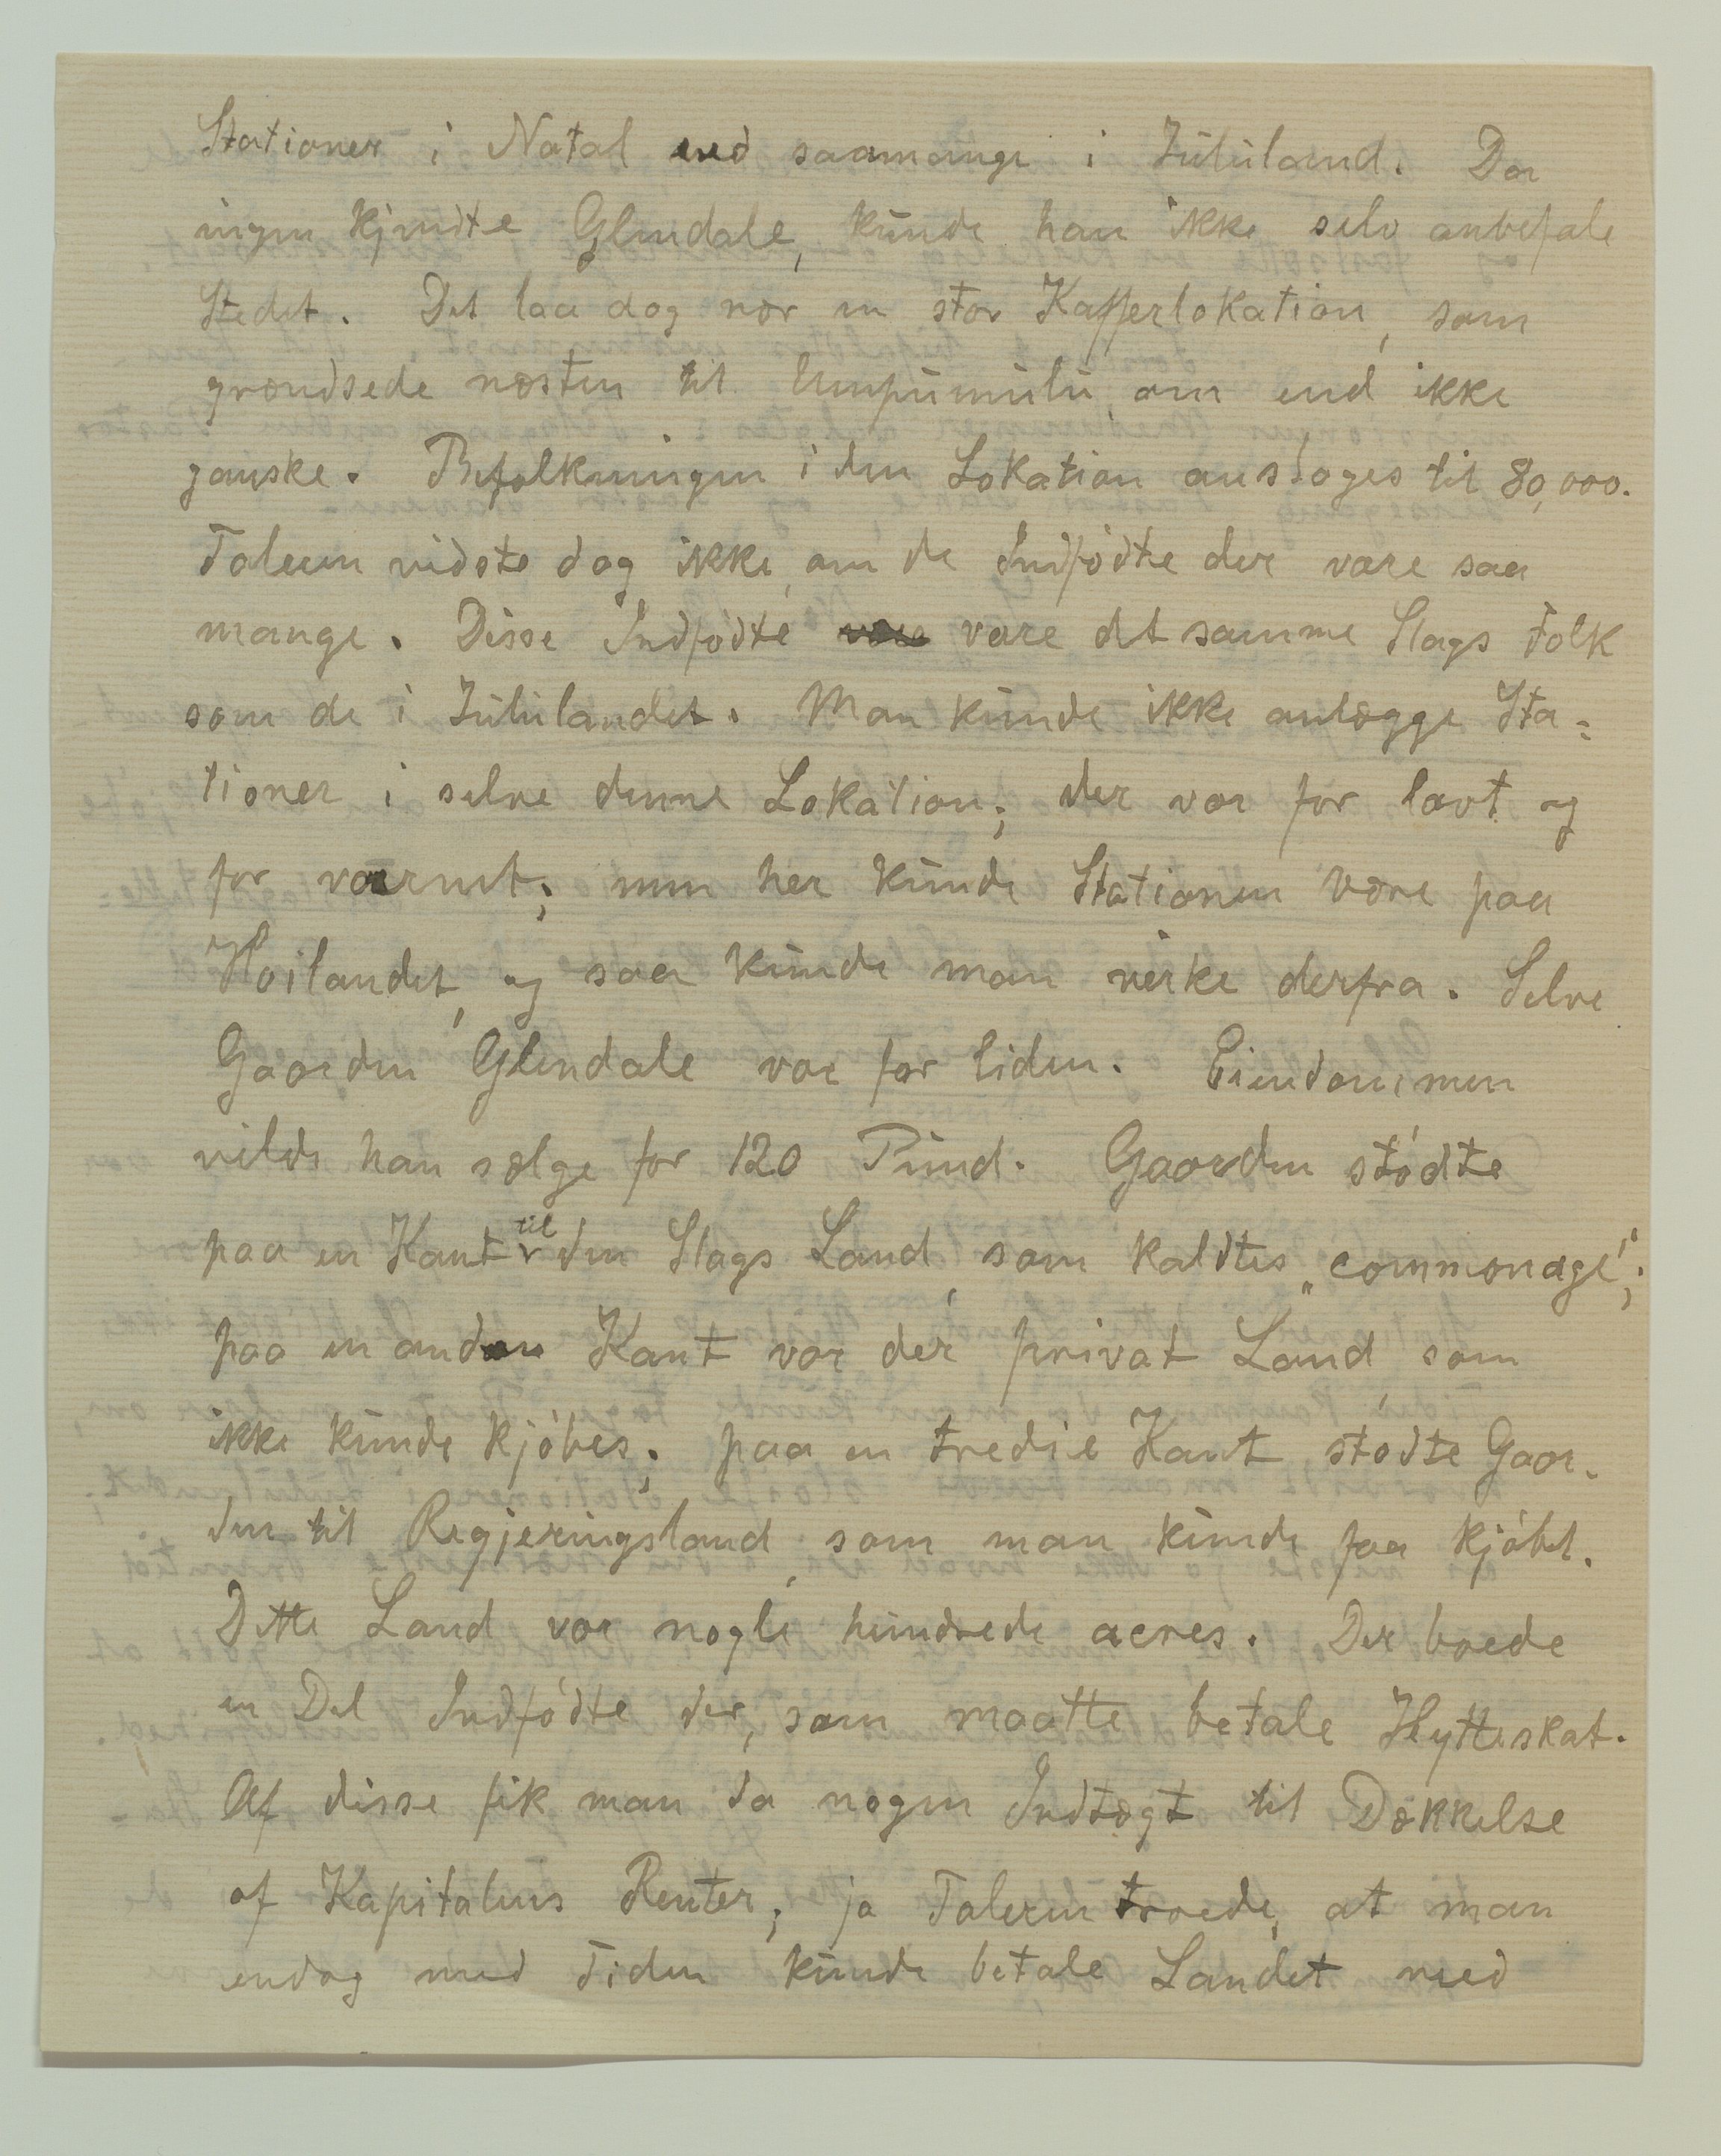 Stationer i Natal end saamange i Zululand. Da
ingen kjendte Glendale, kunde han ikke selv anbefale
Stedet. Det laa dog nær en stor Kafferlokation, som
grændsede næsten til Umpumulu, om end ikke
ganske. Befolkningen i den Lokation ansloges til 80,000.
Taleren vidste dog ikke, om de Indfødte der vare saa
mange. Disse Indfødte vare det samme Slags Folk
som de i Zululandet. Man kunde ikke anlægge Sta-
tioner i selve denne Lokation; der var for lavt og
for varmt; men her kunde Stationen være paa
Høilandet, og saa kunde man virke derfra. Selve
Gaarden Glendale var for liden. Eiendommen
vilde han sælge for 120 Pund. Gaarden stødte
paa en Kant til den Slags Land, som kaldtes „commonage";
paa en anden Kant var der privat Land, som
ikke kunde kjøbes; paa en tredie Kant stødte Gaar-
den til Regjeringsland, som man kunde faa kjøbt.
Dette Land var nogle hundrede acres. Der boede
en Del Indfødte der, som maatte betale Hytteskat.
Af disse fik man da nogen Indtægt til Dækkelse
af Kapitalens Renter; ja Taleren troede, at man
endog med Tiden kunde betale Landet med